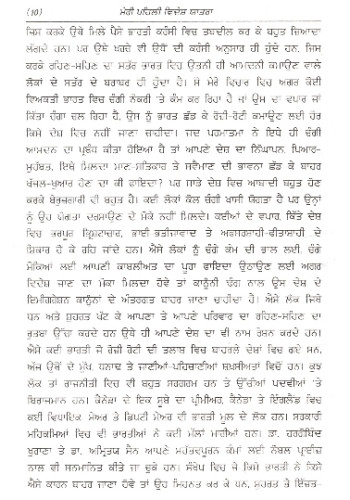 (10) ਮੇਰੀ ਪਹਿਲੀ ਵਿਦੇਸ਼ ਯਾਤਰਾ
ਜਿਸ ਕਰਕੇ ਉਥੇ ਮਿਲੇ ਪੈਸੇ ਭਾਰਤੀ ਕਰੰਸੀ ਵਿਚ ਤਬਦੀਲ ਕਰ ਕੇ ਬਹੁਤ ਜ਼ਿਆਦਾ
ਲੱਗਦੇ ਹਨ। ਪਰ ਉਥੇ ਖਰਚੇ ਵੀ ਉਥੋਂ ਦੀ ਕਰੰਸੀ ਅਨੁਸਾਰ ਹੀ ਹੁੰਦੇ ਹਨ, ਜਿਸ
ਕਰਕੇ ਰਹਿਣ-ਸਹਿਣ ਦਾ ਸਤੱਰ ਭਾਰਤ ਵਿਚ ਉਤਨੀ ਹੀ ਆਮਦਨੀ ਕਮਾਉਣ ਵਾਲੇ
ਲੋਕਾਂ ਦੇ ਸਤੱਰ ਦੇ ਬਰਾਬਰ ਹੀ ਹੁੰਦਾ ਹੈ। ਸੋ ਮੇਰੇ ਵਿਚਾਰ ਵਿਚ ਅਗਰ ਕੋਈ
ਵਿਅਕਤੀ ਭਾਰਤ ਵਿਚ ਚੰਗੀ ਨੌਕਰੀ 'ਤੇ ਕੰਮ ਕਰ ਰਿਹਾ ਹੈ ਜਾਂ ਉਸ ਦਾ ਵਪਾਰ ਜਾਂ
ਕਿੱਤਾ ਚੰਗਾ ਚਲ ਰਿਹਾ ਹੈ, ਉਸ ਨੂੰ ਭਾਰਤ ਛੱਡ ਕੇ ਰੋਜ਼ੀ-ਰੋਟੀ ਕਮਾਉਣ ਲਈ ਹੋਰ
ਕਿਸੇ ਦੇਸ਼ ਵਿਚ ਨਹੀਂ ਜਾਣਾ ਚਾਹੀਦਾ। ਜਦ ਪਰਮਾਤਮਾ ਨੇ ਇਥੇ ਹੀ ਚੰਗੀ
ਆਮਦਨ ਦਾ ਪ੍ਰਬੰਧ ਕੀਤਾ ਹੋਇਆ ਹੈ ਤਾਂ ਆਪਣੇ ਦੇਸ਼ ਦਾ ਨਿੱਘਾਪਨ, ਪਿਆਰ-
ਮੁਹੱਬਤ, ਇਥੇ ਮਿਲਦਾ ਮਾਣ-ਸਤਿਕਾਰ ਤੇ ਸਵੈਮਾਣ ਦੀ ਭਾਵਨਾ ਛੱਡ ਕੇ ਬਾਹਰ
ਖੱਜਲ-ਖੁਆਰ ਹੋਣ ਦਾ ਕੀ ਫ਼ਾਇਦਾ? ਪਰ ਸਾਡੇ ਦੇਸ਼ ਵਿਚ ਆਬਾਦੀ ਬਹੁਤ ਹੋਣ
ਕਰਕੇ ਬੇਰੁਜ਼ਗਾਰੀ ਵੀ ਬਹੁਤ ਹੈ। ਕਈ ਲੋਕਾਂ ਕੋਲ ਚੰਗੀ ਖਾਸੀ ਯੋਗਤਾ ਹੈ ਪਰ ਉਨ੍ਹਾਂ
ਨੂੰ ਉਹ ਯੋਗਤਾ ਦਰਸਾਉਣ ਦੇ ਮੌਕੇ ਨਹੀਂ ਮਿਲਦੇ। ਕਈਆਂ ਦੇ ਵਪਾਰ, ਕਿੱਤੇ ਦੇਸ਼
ਵਿਚ ਭਰਪੂਰ ਭ੍ਰਿਸ਼ਟਾਚਾਰ, ਭਾਈ ਭਤੀਜਾਵਾਦ ਤੇ ਅਫ਼ਸਰਸ਼ਾਹੀ-ਫੀਤਾਸ਼ਾਹੀ ਦੇ
ਸ਼ਿਕਾਰ ਹੋ ਕੇ ਰਹਿ ਜਾਂਦੇ ਹਨ। ਐਸੇ ਲੋਕਾਂ ਨੂੰ ਚੰਗੇ ਕੰਮ ਦੀ ਭਾਲ ਲਈ, ਚੰਗੇ
ਮੌਕਿਆਂ ਲਈ ਆਪਣੀ ਕਾਬਲੀਅਤ ਦਾ ਪੂਰਾ ਫਾਇਦਾ ਉਠਾਉਣ ਲਈ ਅਗਰ
ਵਿਦੇਸ਼ ਜਾਣ ਦਾ ਮੌਕਾ ਮਿਲਦਾ ਹੋਵੇ ਤਾਂ ਕਾਨੂੰਨੀ ਢੰਗ ਨਾਲ ਉਸ ਦੇਸ਼ ਦੇ
ਇਮੀਗਰੇਸ਼ਨ ਕਾਨੂੰਨਾਂ ਦੇ ਅੰਤਰਗਤ ਬਾਹਰ ਜਾਣਾ ਚਾਹੀਦਾ ਹੈ। ਐਸੇ ਲੋਕ ਜਿਥੇ
ਧਨ ਅਤੇ ਸ਼ੁਹਰਤ ਖੱਟ ਕੇ ਆਪਣਾ ਤੇ ਆਪਣੇ ਪਰਿਵਾਰ ਦਾ ਰਹਿਣ-ਸਹਿਣ ਦਾ
ਰੁਤਬਾ ਉੱਚਾ ਕਰਦੇ ਹਨ ਉਥੇ ਹੀ ਆਪਣੇ ਦੇਸ਼ ਦਾ ਵੀ ਨਾਮ ਰੌਸ਼ਨ ਕਰਦੇ ਹਨ।
ਐਸੇ ਕਈ ਭਾਰਤੀ ਜੋ ਰੋਜ਼ੀ ਰੋਟੀ ਦੀ ਤਲਾਸ਼ ਵਿਚ ਬਾਹਰਲੇ ਦੇਸ਼ਾਂ ਵਿਚ ਗਏ ਸਨ,
ਅੱਜ ਉਥੋਂ ਦੇ ਮੁੱਖ, ਧਨਾਢ ਤੇ ਜਾਣੀਆਂ-ਪਹਿਚਾਣੀਆਂ ਸ਼ਖ਼ਸੀਅਤਾਂ ਵਿਚੋਂ ਹਨ। ਕੁਝ
ਲੋਕ ਤਾਂ ਰਾਜਨੀਤੀ ਵਿਚ ਵੀ ਬਹੁਤ ਸਰਗਰਮ ਹਨ ਤੇ ਉੱਚੀਆਂ ਪਦਵੀਆਂ 'ਤੇ
ਬਿਰਾਜਮਾਨ ਹਨ। ਕੈਨੇਡਾ ਦੇ ਇਕ ਸੂਬੇ ਦਾ ਪ੍ਰੀਮੀਅਰ, ਕੈਨੇਡਾ ਤੇ ਇੰਗਲੈਂਡ ਵਿਚ
ਕਈ ਵਿਧਾਇਕ ਮੇਅਰ ਤੇ ਡਿਪਟੀ ਮੇਅਰ ਵੀ ਭਾਰਤੀ ਮੂਲ ਦੇ ਲੋਕ ਹਨ। ਸਰਕਾਰੀ
ਮਹਿਕਮਿਆਂ ਵਿਚ ਵੀ ਭਾਰਤੀਆਂ ਨੇ ਕਈ ਮੱਲਾਂ ਮਾਰੀਆਂ ਹਨ। ਡਾ. ਹਰਗੋਬਿੰਦ
ਖੁਰਾਣਾ ਤੇ ਡਾ. ਅਮ੍ਰਿਤਯ ਸੈਨ ਆਪਣੇ ਮਹੱਤਵਪੂਰਨ ਕੰਮਾਂ ਲਈ ਨੋਬਲ ਪ੍ਰਾਈਜ਼
ਨਾਲ ਵੀ ਸਨਮਾਨਿਤ ਕੀਤੇ ਜਾ ਚੁਕੇ ਹਨ। ਸੰਖੇਪ ਵਿਚ ਜੇ ਕਿਸੇ ਭਾਰਤੀ ਨੇ ਕਿਸੀ
ਐਸੇ ਕਾਰਨ ਬਾਹਰ ਜਾਣਾ ਹੋਵੇ ਤਾਂ ਉਹ ਮਿਹਨਤ ਕਰ ਕੇ ਧਨ, ਸ਼ੁਹਰਤ ਤੇ ਇੱਜ਼ਤ-